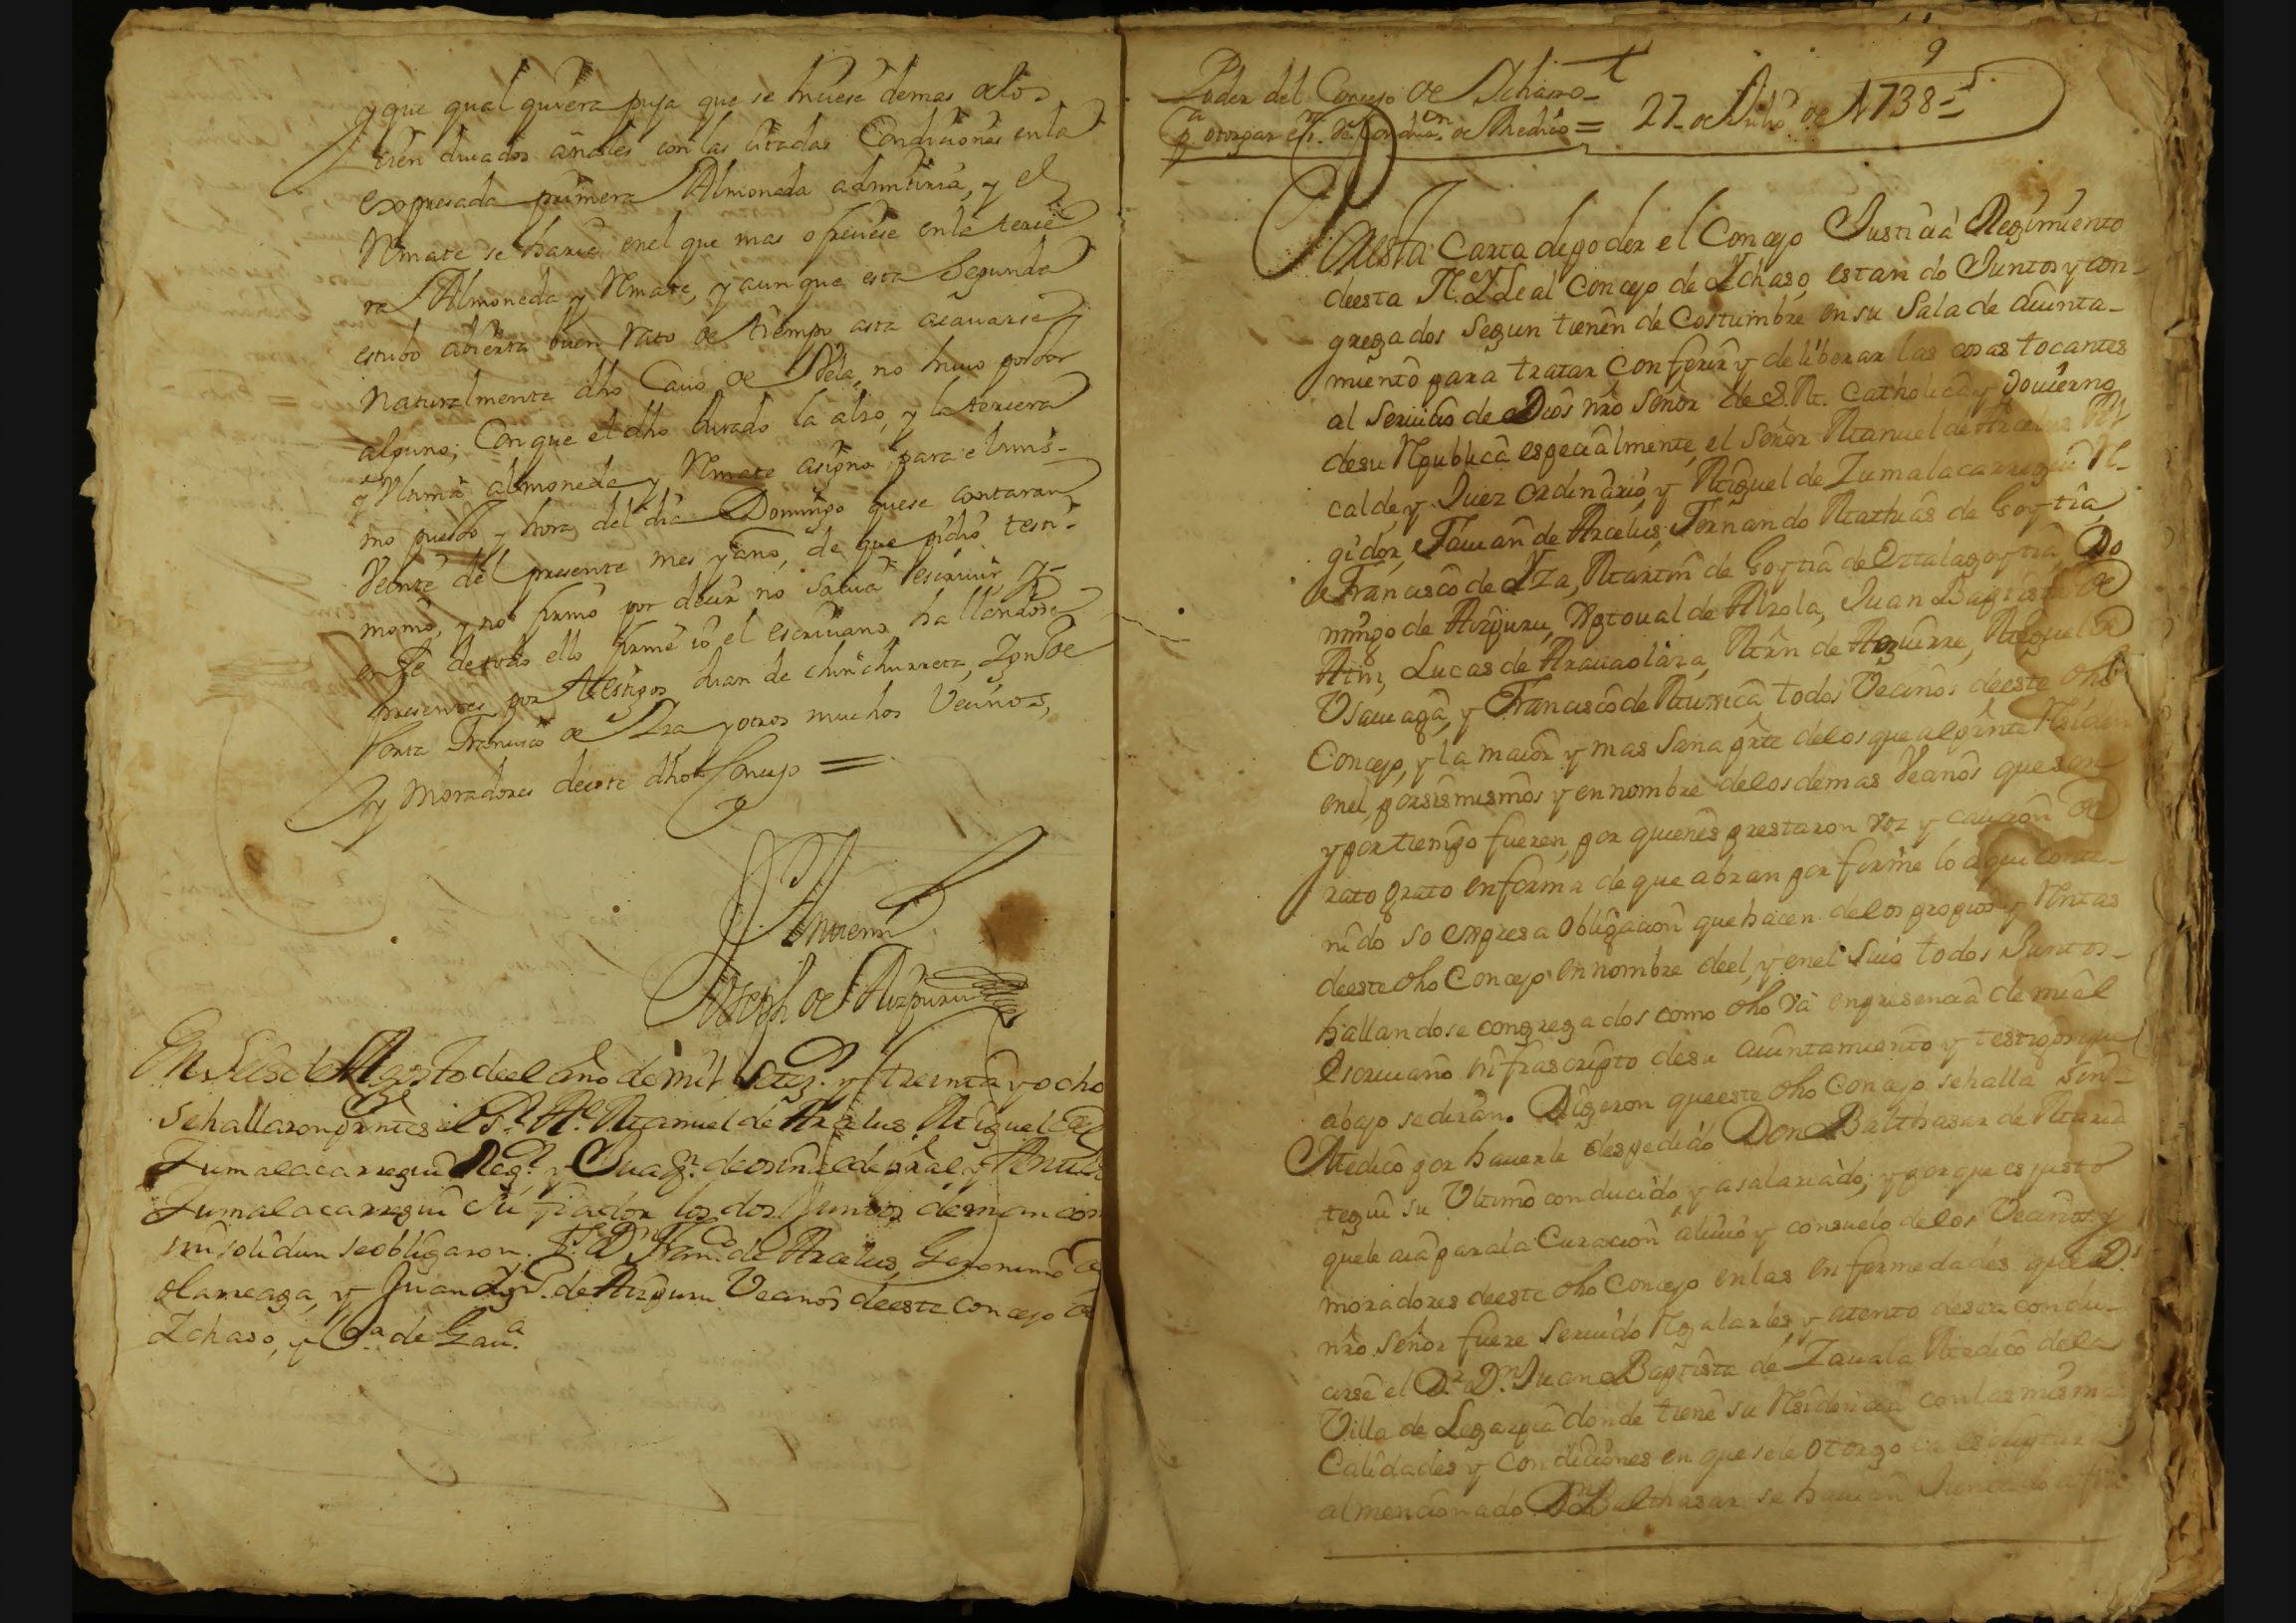 y que qual quiera puja que se hiciese demas de los
cien ducados añales con las citadas Condiciones en la
expresada primera Almoneda admitiria, y el
Rmate se haria en el que mas ofreciese en la terce
ra Almoneda y Rmate, y aun que esta Segunda
estubo abierta buen rato de tiempo asta acavarse
naturalmente dho Cavo de Vela, no huvo postor
alguno; Con que el dho Jurado la alzo, y la tercera
y Vltima almoneda y Rmate asigno para el mis-
mo puesto y hora del dia Domingo que se contaran
Veinte del presente mes y año, de que pidio testi-
monio, y no firmo por decir no Savia escrivir y
en fe de todo ello firme io el escrivano hallandose
presentes por testigos Juan de chinchurreta, Ign.º de
Francisco de Yza y otros muchos Vecinos,
y Moradores de este dho Concejo =
Ante mi
Joseph de Aizpuru
En Seis de Agosto de el año de mil Setez.s y treinta y ocho
se hallaron pñtes el S.r Al.e Manuel de Arcelus, Miguel de
Zumalacarregui Reg.r y Juan
Zumalacarregui su fiador los dos Juntos de man comun
in solidun se obligaron. T.s D.n Fran.co de Arcelus, Geronimo de
olareaga, y Juan Bap.ta de Aizpuru Vecinos de este concejo de
Ychaso, y
9
Poder del Concejo de Ychaso
p.a otorgar esc.ra de Conduz.on de Medico = 27 de Julio de 1738
En esta Carta de poder el Concejo Justicia Regimiento
de esta N. y Leal Concejo de Ychaso, estando Juntos y con-
gregados Segun tienen de Costumbre en su Sala de aiunta-
miento para tratar conferir y deliberar las cosas tocantes
al Servicio de Dios nro Señor de S.M. Catholica y Govierno
de su Rpublica especialmente, el Señor Manuel de Arcelus Al
calde y Juez ordinario, y Miguel de Zumalacarregui R-
gidor, Fauian de Arcelus, Fernando Mathias de Goytia,
Francisco de Yza, Martin de Goytia de Oztalagoytia, Do
mingo de Aizpuru, Xptoual de Alzola, Juan Baptista de
Atin, Lucas de Arauaolaza, Mrn de Aguirre, Miguel de
Vsauiaga, y Francisco de Murrica todos Vecinos de este dho
Concejo, y la maior y mas Sana parte de los que al pnte Rsiden
en el, por si mismos y en nombre de los demas Vecinos que son
y por tiempo fueren, por quienes prestaron voz y caucion de
rato grato en forma de que abran por firme lo aqui conte-
nido so expresa obligacion que hacen de los propios y Rntas
de este dho Concejo en nombre de el, y en el Suio todos Juntos
hallandose congregados como dho va en presencia de mi el
escriuano infrascripto de su aiuntamiento y testigos que
abajo se diran. Digeron que este dho Concejo se halla Sin
Medico por hauerle despedido Don Balthasar de Maria
tegui su Vltimo conducido y asalariado; y por que es justo
que le aia para la Curacion aliuio y consuelo de los Vecinos y
moradores de este dho Concejo en las enfermedades que D.s
nro Señor fuere Seruido Rgalarles, y atento desea condu-
cirse el D.r D.n Juan Baptista de Zauala Medico de la
Villa de Legazpia donde tiene su Rsidencia con las mismas
Calidades y condiciones en que se le otorgo la escriptura
al mencionado D.n Balthasar se hauian